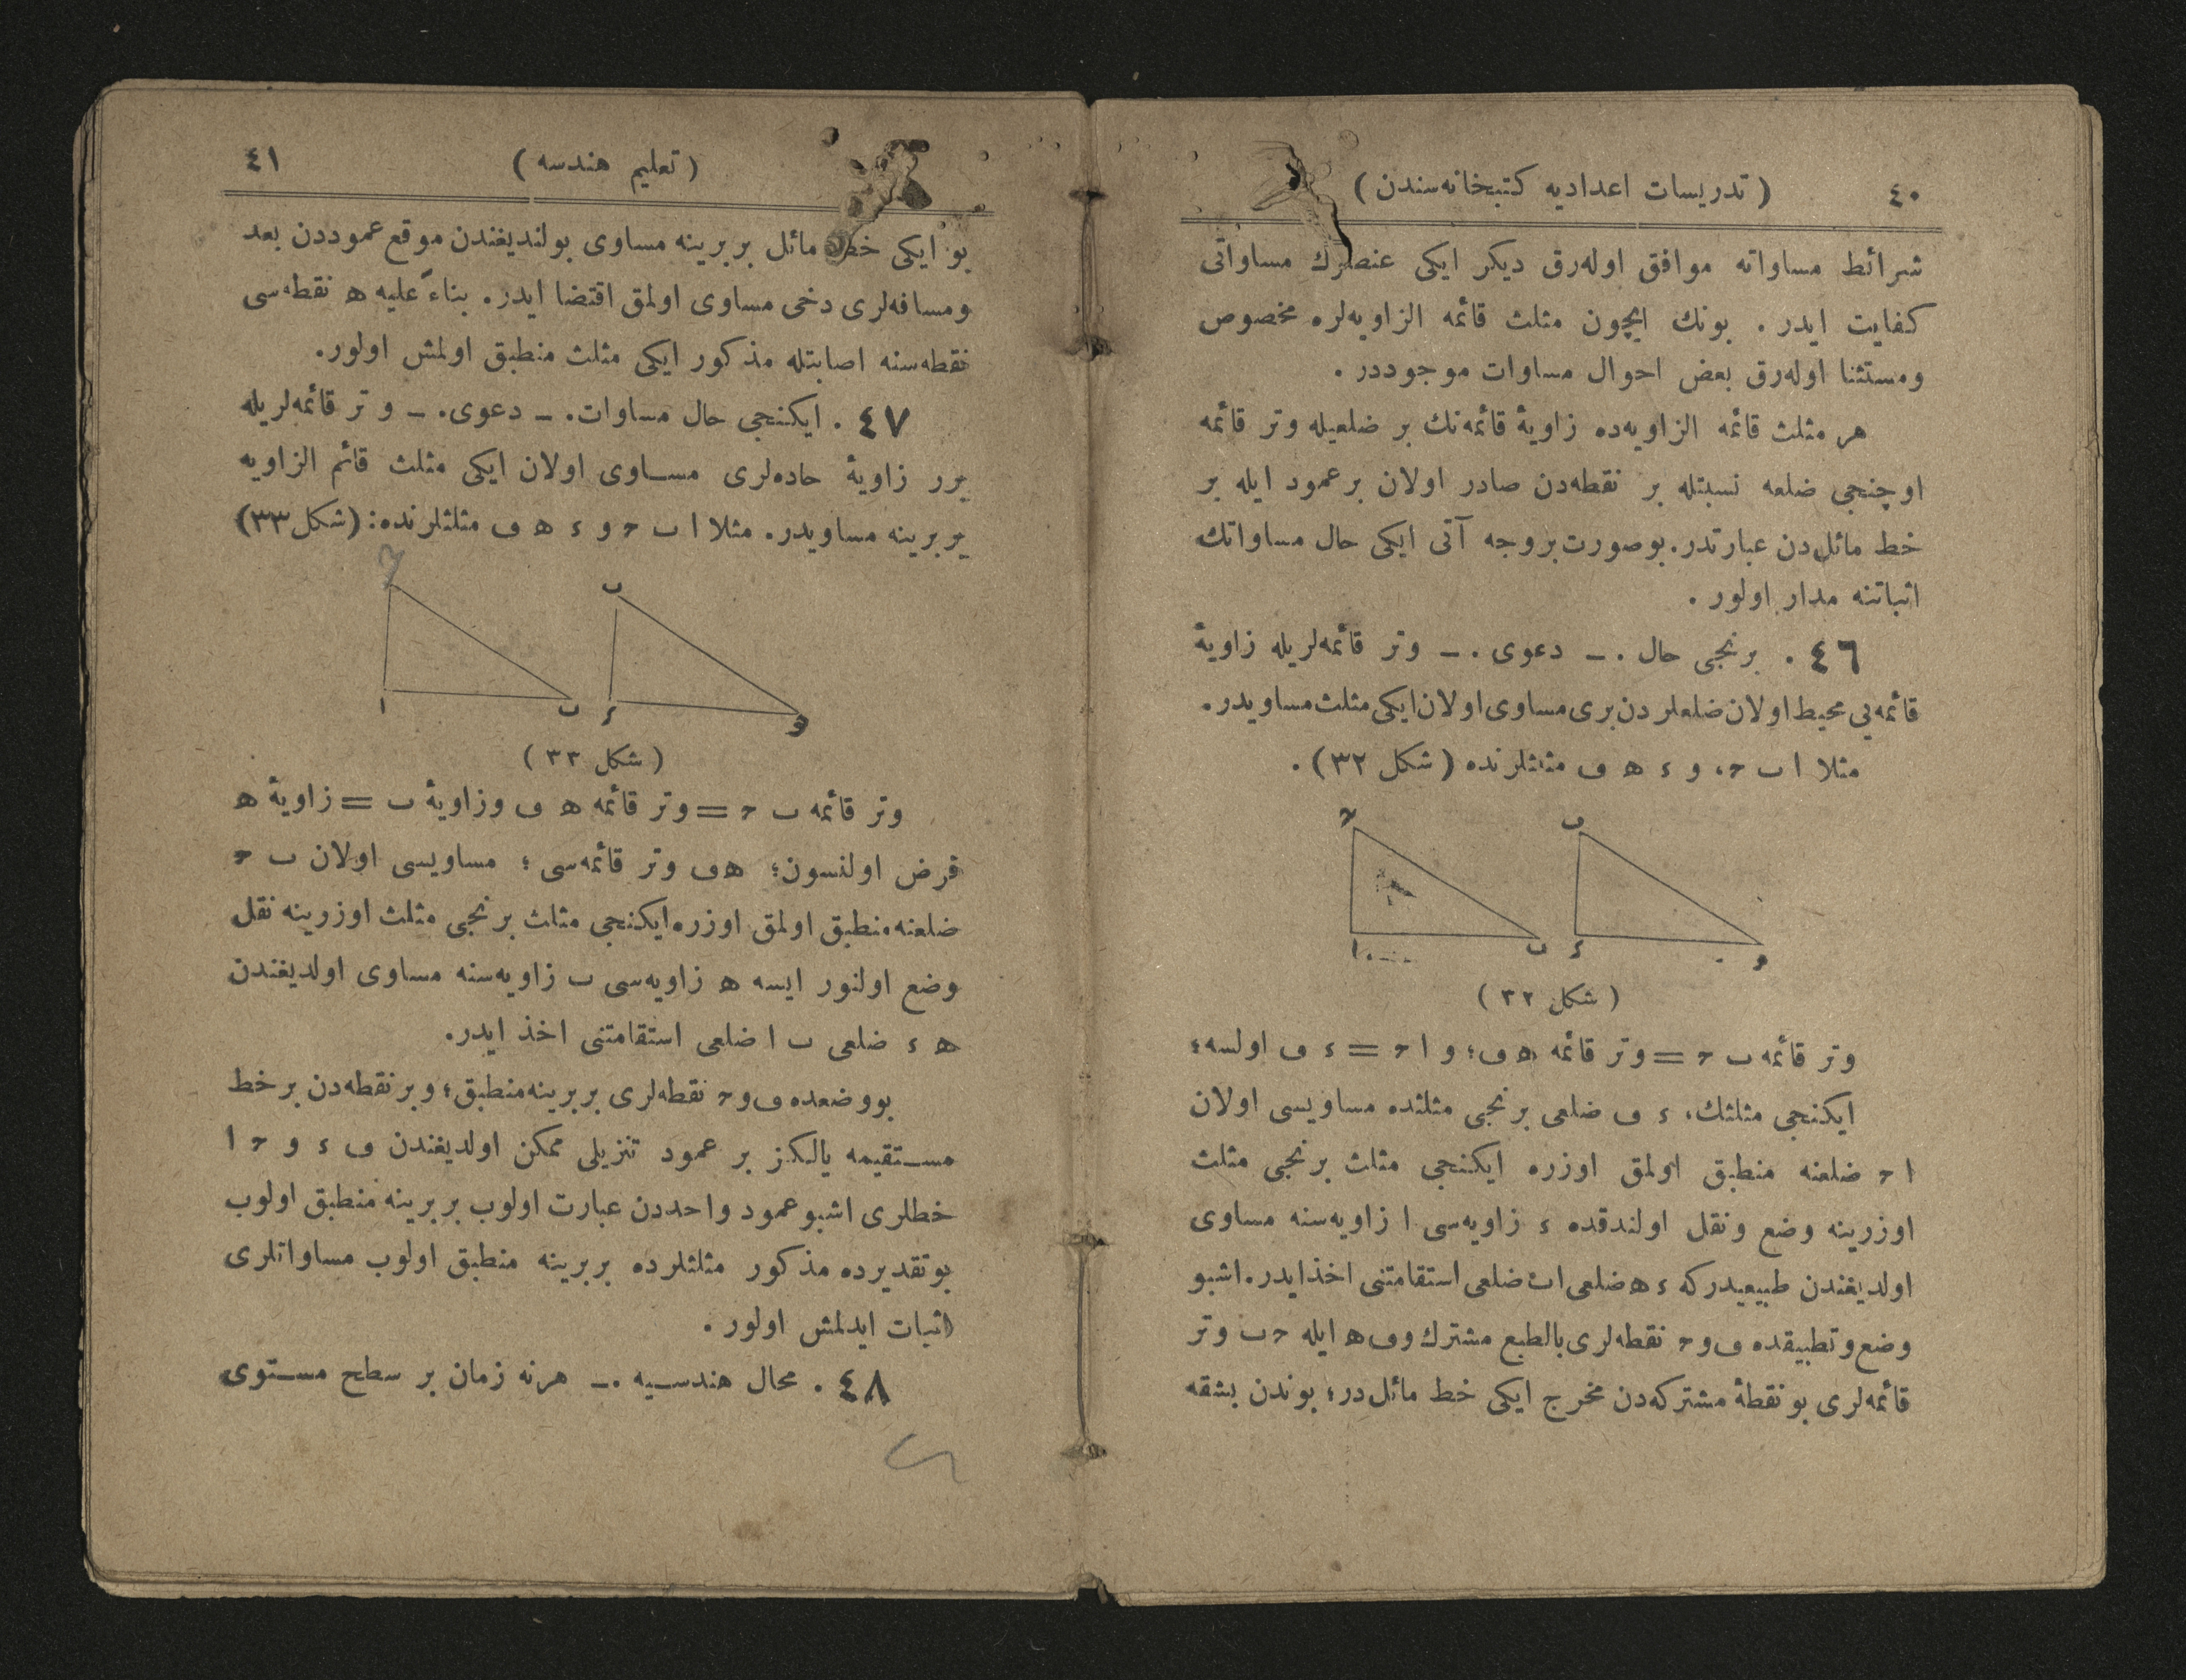 ٤٠
( تدریسات اعدادیه كتبخانه‌سندن )
شرائط مساواته موافق اوله‌رق دیكر ایكی عنصرك مساواتی
كفایت ایدر . بونك ایچون مثلث قائمه الزاویه‌لره مخصوص
ومستثنا اوله‌رق بعض احوال مساوات موجوددر .
هر مثلث قائمه الزاویه‌ده زاویهٔ قائمه‌نك بر ضلعیله وتر قائمه
اوچنجی ضلعه نسبتله بر نقطه‌دن صادر اولان بر عمود ایله بر
خط مائل‌دن عبارتدر. بوصورت بروجه آتی ایكی حال مساواتك
اثباتنه مدار اولور .
٤٦ . برنجی حال . ــ دعوی . ــ وتر قائمه‌لریله زاویهٔ
قائمه‌یی محیط اولان ضلعلردن بری مساوی اولان ایكی مثلث مساویدر.
مثلا ا ب ح ، و ء ه ف مثلثلرنده ( شكل ٣٢ ) .
ح ف
ا ب ء ه
( شكل ٣٢ )
وتر قائمه ب ح = وتر قائمه ه ف ؛ و ا ح = ء ف اولسه ؛
ایكنجی مثلثك ، ء ف ضلعی برنجی مثلثده مساویسی اولان
ا ح ضلعنه منطبق اولمق اوزره ایكنجی مثلث برنجی مثلث
اوزرینه وضع ونقل اولندقده ء زاویه‌سی ا زاویه‌سنه مساوی
اولدیغندن طبیعیدركه ء ه ضلعی اب ضلعی استقامتنی اخذ ایدر. اشبو
وضع وتطبیقده ف و ح نقطه‌لری بالطبع مشترك و ف ه ایله ح ب وتر
قائمه‌لری بو نقطهٔ مشتركه‌دن مخرج ایكی خط مائل‌در ؛ بوندن بشقه
( تعلیم هندسه )
٤١
بو ایكی خط مائل بربرینه مساوی بولندیغندن موقع عموددن بعد
ومسافه‌لری دخی مساوی اولمق اقتضا ایدر. بناءً علیه ه نقطه‌سی
نقطه‌سنه اصابتله مذكور ایكی مثلث منطبق اولمش اولور.
٤٧ . ایكنجی حال مساوات. ــ دعوی. ــ و تر قائمه‌لریله
برر زاویهٔ حاده‌لری مساوی اولان ایكی مثلث قائم الزاویه
بربرینه مساویدر. مثلا ا ب ح و ء ه ف مثلثلرنده : (شكل ٣٣)
ح ف
ا ب ء ه
( شكل ٣٣ )
وتر قائمه ب ح = وتر قائمه ه ف وزاویهٔ ب = زاویهٔ ه
فرض اولنسون ؛ ه ف وتر قائمه‌سی ؛ مساویسی اولان ب ح
ضلعنه منطبق اولمق اوزره ایكنجی مثلث برنجی مثلث اوزرینه نقل
وضع اولنور ایسه ه زاویه‌سی ب زاویه‌سنه مساوی اولدیغندن
ه ء ضلعی ب ا ضلعی استقامتنی اخذ ایدر.
بو وضعده ف و ح نقطه‌لری بربرینه منطبق ؛ و بر نقطه‌دن بر خط
مستقیمه یالكز بر عمود تنزیلی ممكن اولدیغندن ف ء و ح ا
خطلری اشبو عمود واحددن عبارت اولوب بربرینه منطبق اولوب
بو تقدیرده مذكور مثلثلرده بربرینه منطبق اولوب مساواتلری
اثبات ایدلمش اولور .
٤٨ . محال هندسیه .ــ هرنه زمان بر سطح مستوی